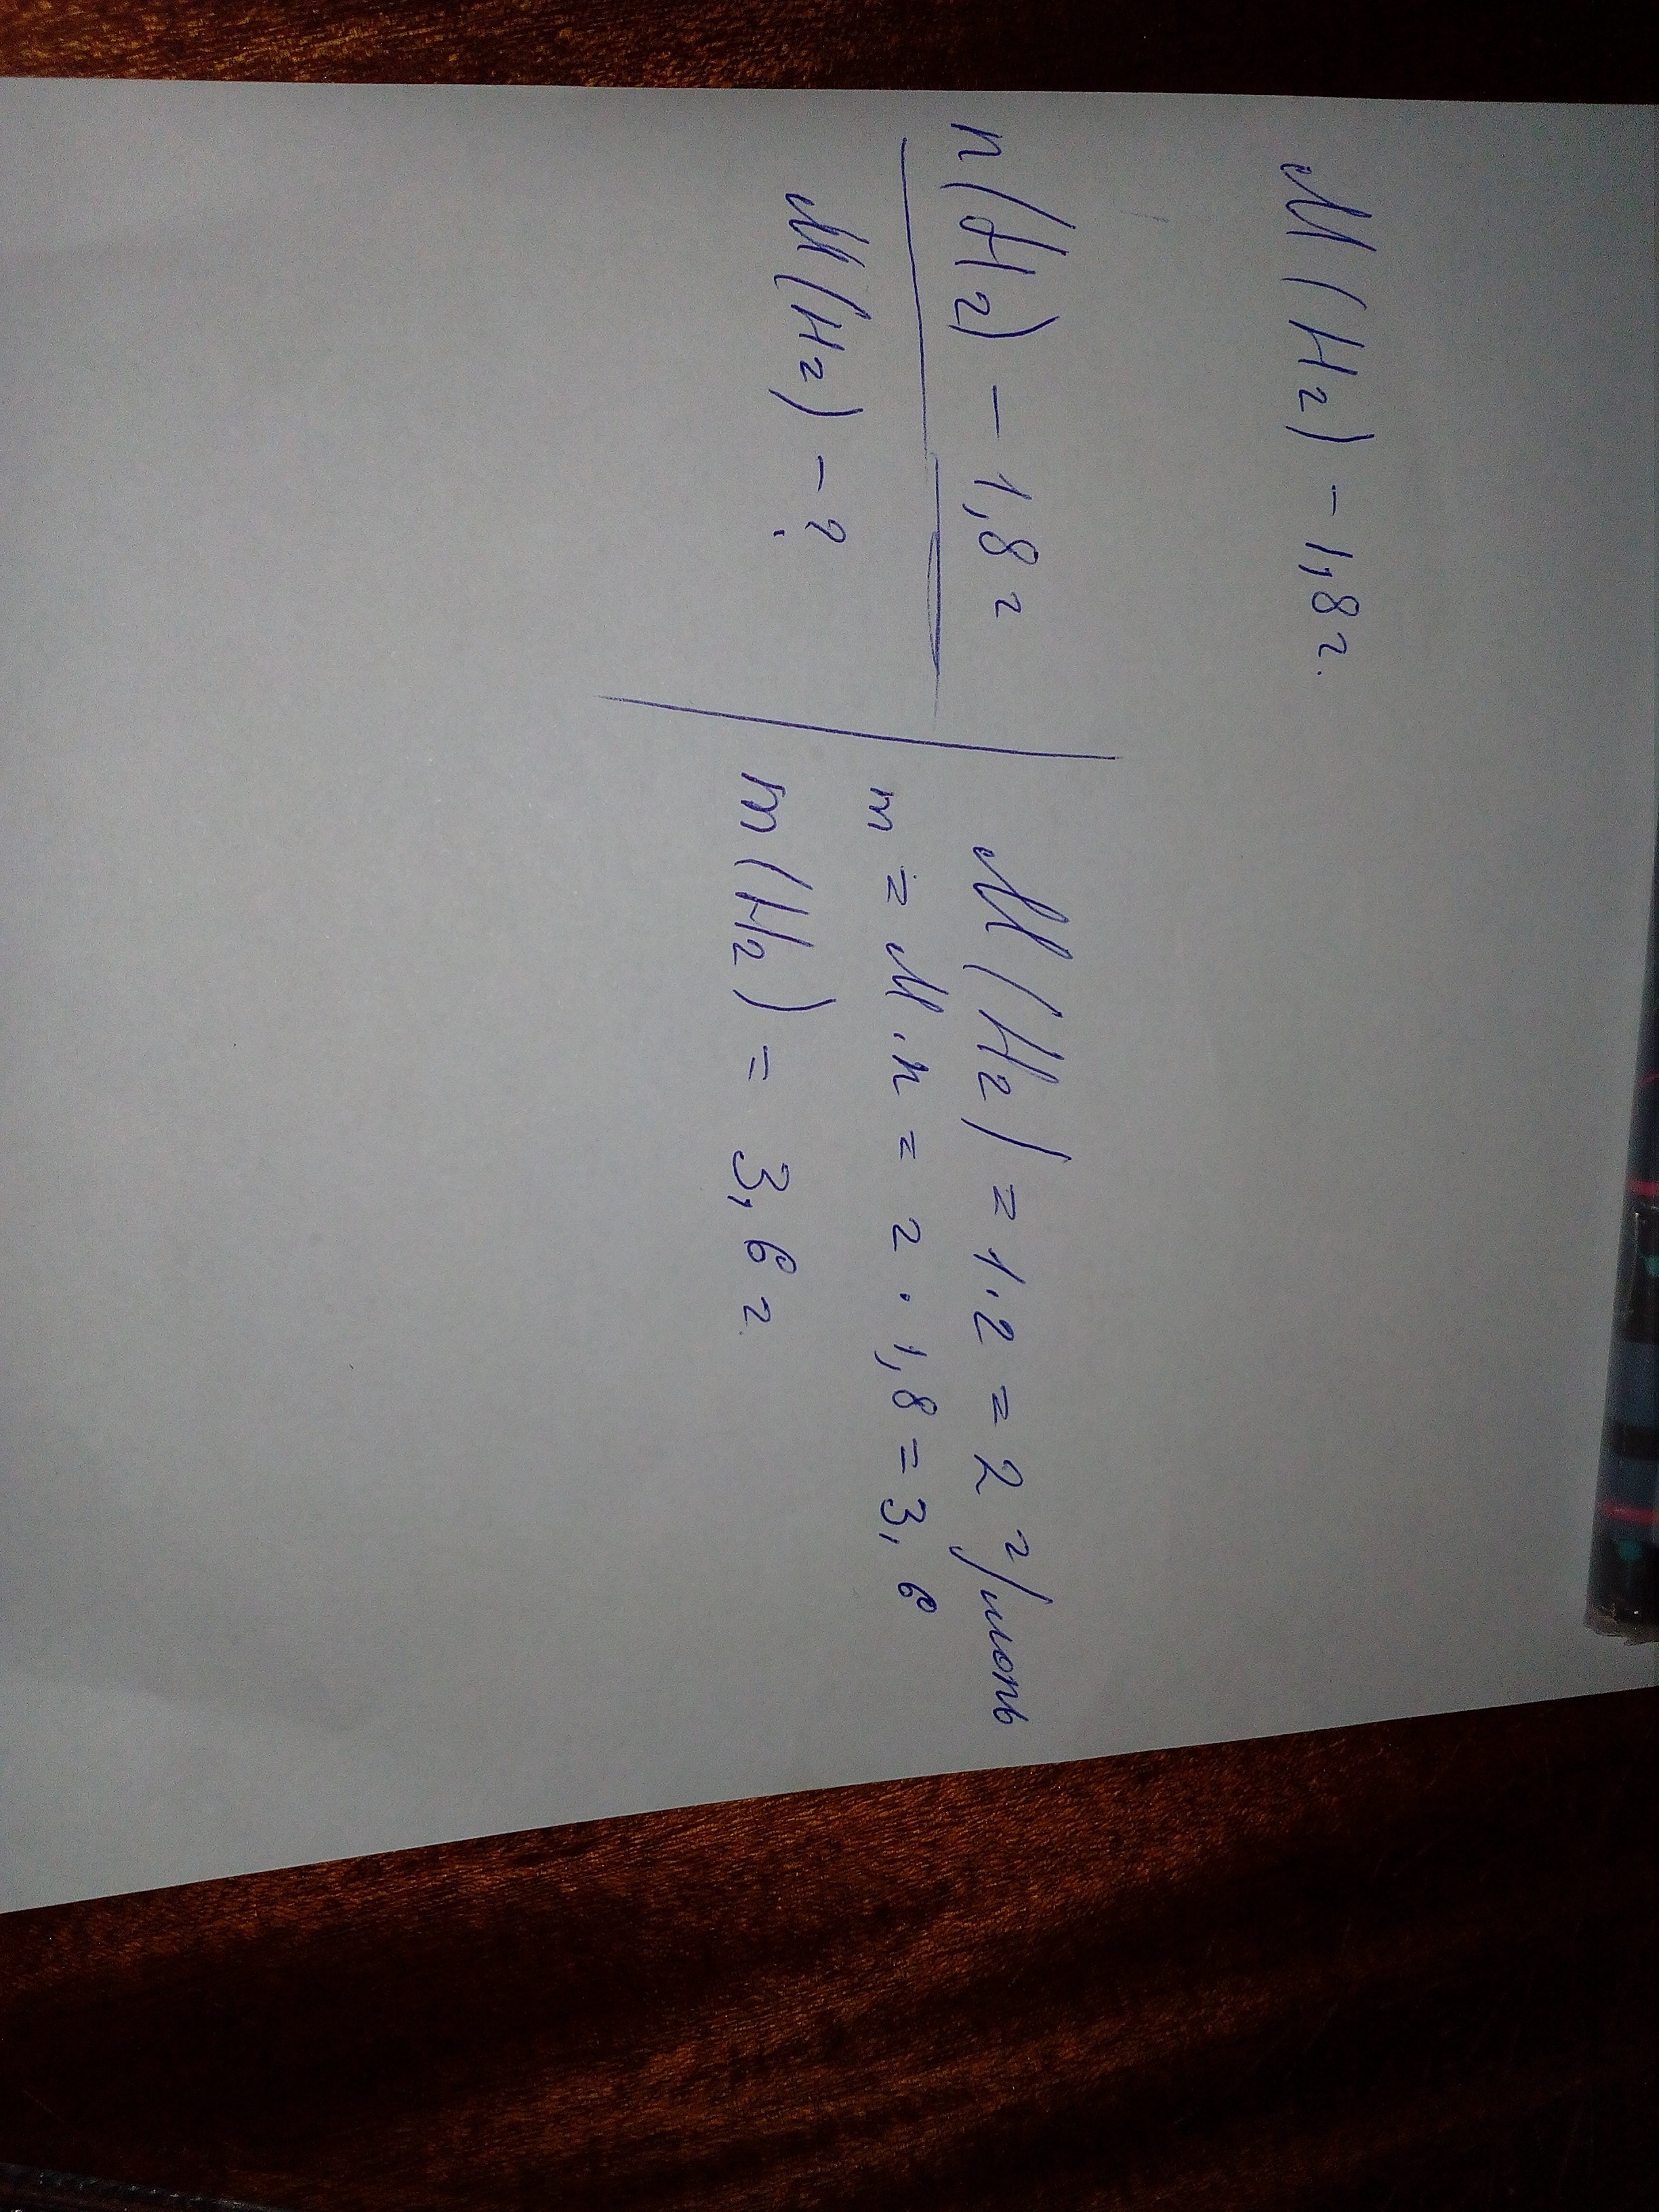 M(H₂) - 1,8 г.
n(H₂) - 1,8 г
M(H₂) - ?
M(H₂) = 1·2 = 2 г/моль
m = M·n = 2·1,8 = 3,6
m(H₂) = 3,6 г.